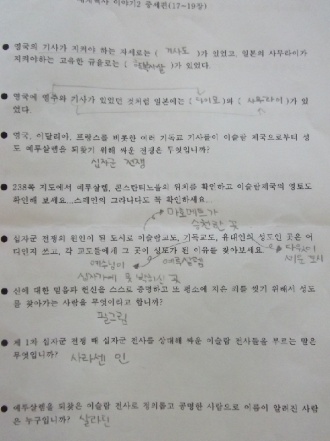 이야기2 중세편(17~19장)
● 영국의 기사가 지켜야 하는 자세로는 ( 기사도 )가 있었고, 일본의 사무라이가
지켜야하는 고유한 규율로는 ( )가 있었다.
● 영국에 영주와 기사가 있었던 것처럼 일본에는 ( 다이묘 )와 ( 사무라이 )가 있
었다.
● 영국, 이탈리아, 프랑스를 비롯한 여러 기독교 기사들이 이슬람 제국으로부터 성
도 예루살렘을 되찾기 위해 싸운 전쟁은 무엇입니까?
십자군 전쟁
● 238쪽 지도에서 예루살렘, 콘스탄티노플의 위치를 확인하고 이슬람제국의 영토도
확인해 보세요. 스페인의 그라나다도 꼭 확인하세요.
마호메트가
승천한 곳
● 십자군 전쟁의 원인이 된 도시로 이슬람교도, 기독교도, 유대인의 성도인 곳은 어
디인지 쓰고, 각 교도들에게 그 곳이 성도가 된 이유를 찾아보세요.
다윗이
세운 도시
예수님이 예루살렘
십자가에 못 박히신 곳
● 신에 대한 믿음과 헌신을 스스로 증명하고 또 평소에 지은 죄를 씻기 위해서 성도
를 찾아가는 사람을 무엇이라고 합니까?
필그림
● 제 1차 십자군 전쟁 때 십자군 전사를 상대해 싸운 이슬람 전사들을 부르는 말은
무엇입니까? 사라센 인
● 예루살렘을 되찾은 이슬람 전사로 정의롭고 공명한 사람으로 이름이 알려진 사람
은 누구입니까? 살라딘